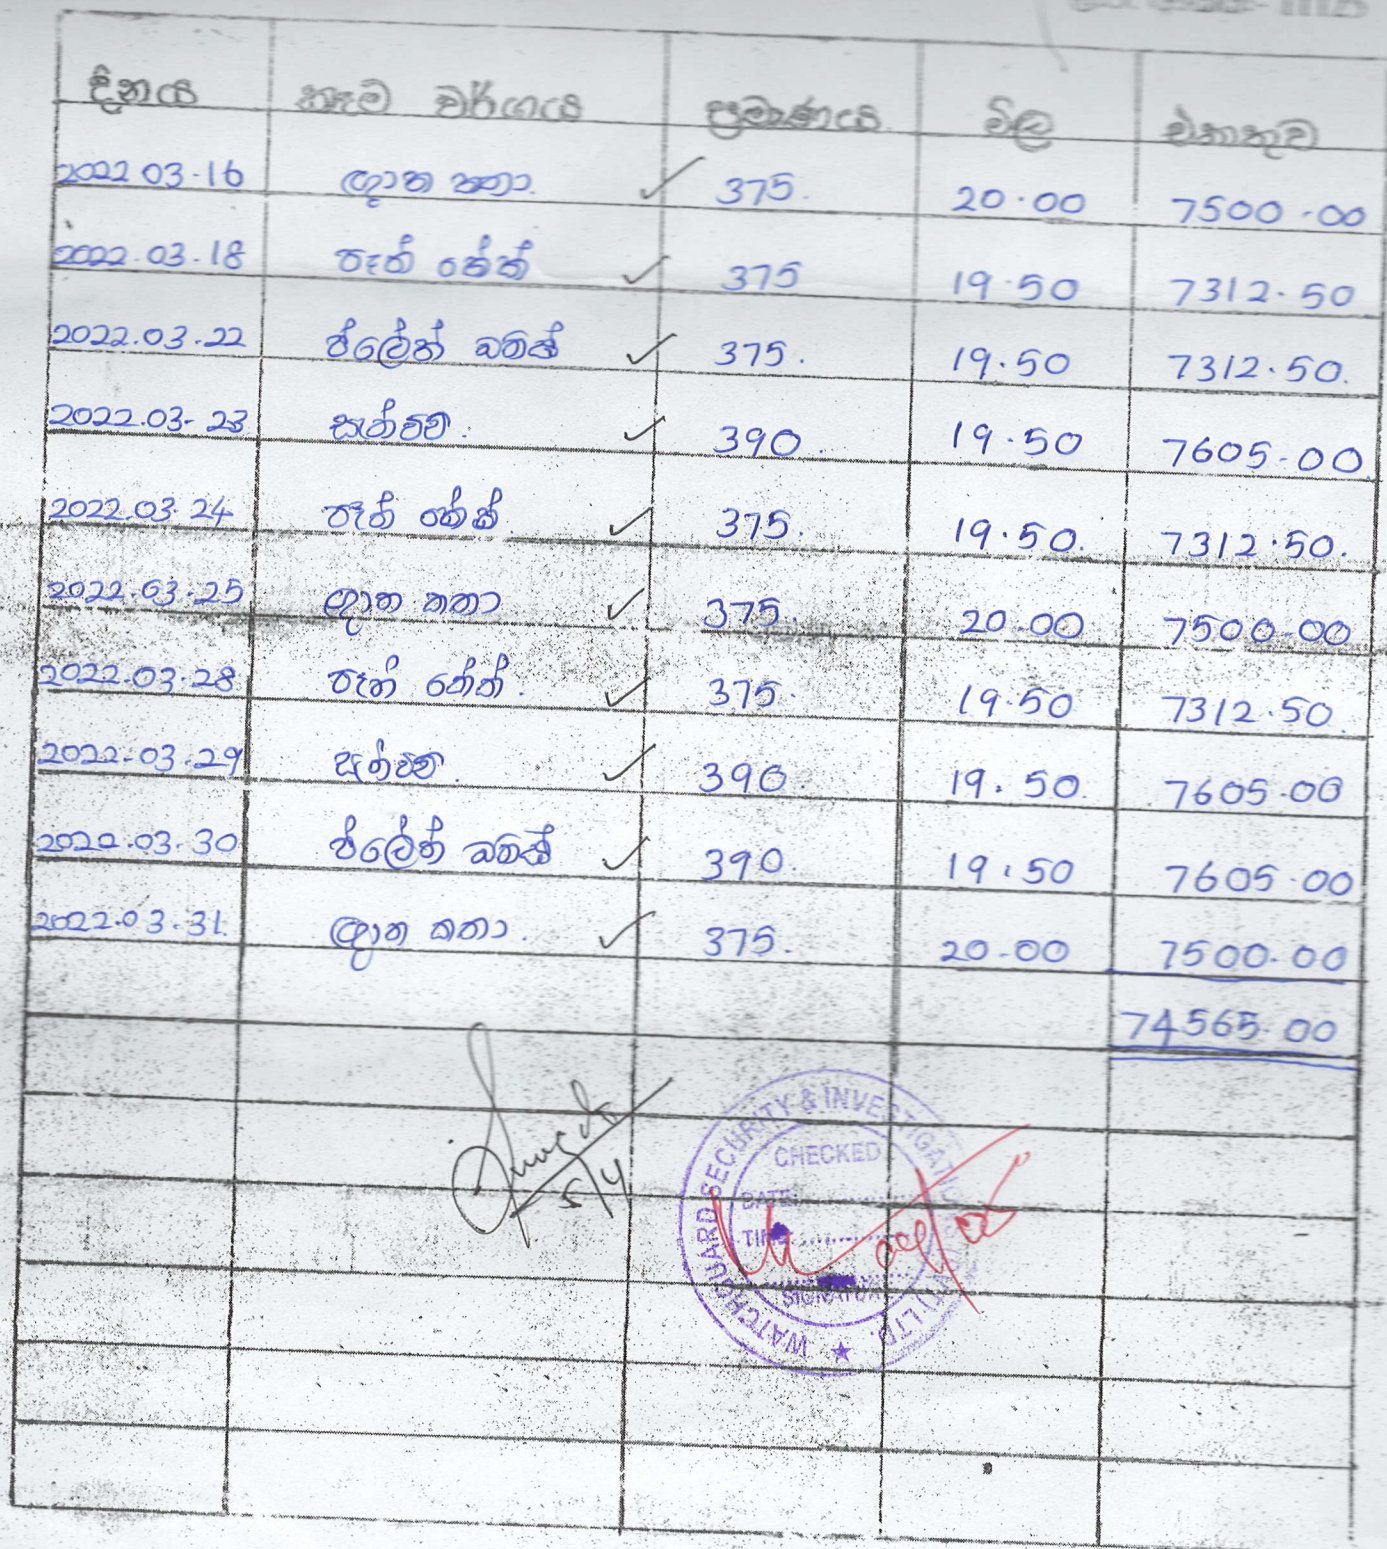 දිනය කෑම වර්ගය ප්‍රමාණය මිල එකතුව
2022 03.16 375. 20.00 7500.00
2022.03.18 පෑන් කේක් 375 19.50 7312.50
2022.03.22 ප්ලේන් බනිස් 375. 19.50 7312.50.
2022.03-23 සැන්විච් 390. 19.50 7605-00.
2022.03.24 පෑන් කේක් 375. 19.50. 7312.50.
2022.03.25 කතා 375. 20.00 7500.00
2022.03.28 පෑන් කේක්. 375. 19.50 7312.50.
2022.03.29 390. 19.50. 7605.00
2022.03.30 ප්ලේන් බනිස් 390. 19.50 7605.00
2022.03.31. කතා. 375. 20.00 7500.00
74565.00
5/4
WATCHGUARD SECURITY & INVESTIGATION LTD.
CHECKED
DATE
TIME
SIGNATURE